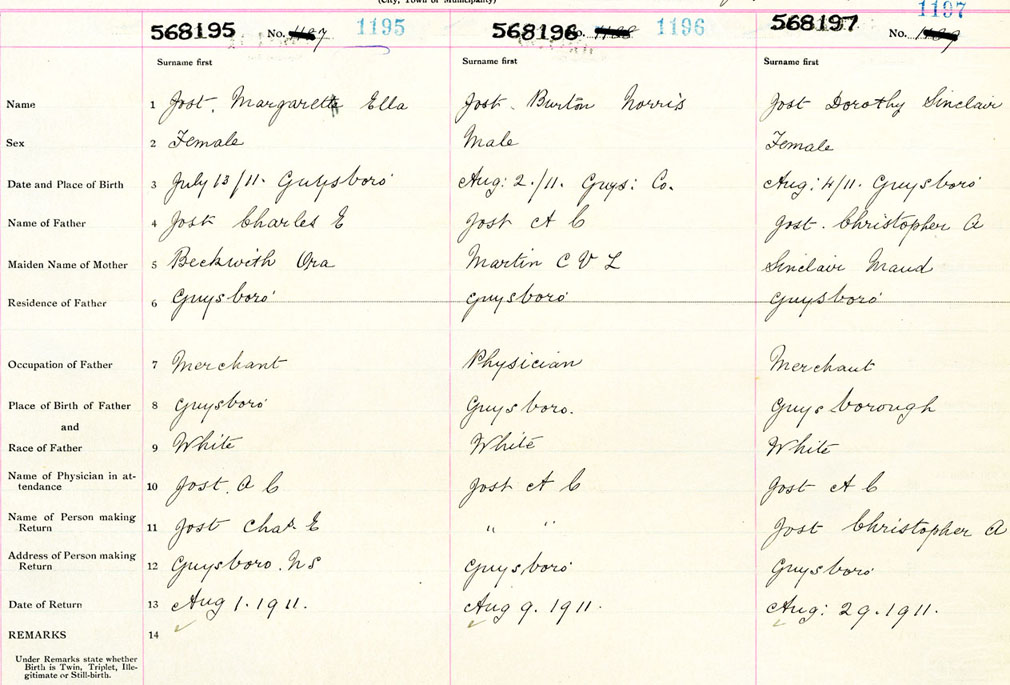 (City, Town or Municipality)
568195 No. 1195
568196 No. 1188 1196
568197 No. 1189 1197
Surname first Surname first Surname first
Name 1 Jost, Margarett Ella Jost. Burton Norris Jost Dorothy Sinclair
Sex 2 Female Male Female
Date and Place of Birth 3 July 13/11. Guysboro Aug: 2./11. Guys: Co. Aug: 4/11. Guysboro
Name of Father 4 Jost Charles E Jost A C Jost. Christopher A
Maiden Name of Mother 5 Beckwith Ora Martin C V L Sinclair Maud
Residence of Father 6 Guysboro Guysboro Guysboro
Occupation of Father 7 Merchant Physician Merchant
Place of Birth of Father 8 Guysboro Guysboro. Guysborough
and
Race of Father 9 White White White
Name of Physician in at-
tendance 10 Jost. A C Jost A C Jost A C
Name of Person making
Return 11 Jost Chas E " " Jost Christopher A
Address of Person making
Return 12 Guysboro. NS Guysboro Guysboro
Date of Return 13 Aug 1. 1911. Aug 9. 1911. Aug: 29. 1911.
REMARKS 14
Under Remarks state whether
Birth is Twin, Triplet, Ille-
gitimate or Still-birth.